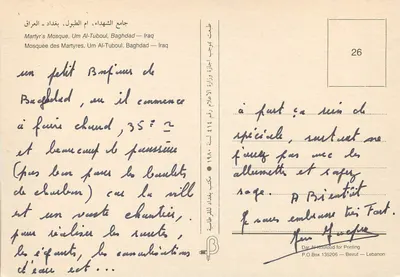 جامع الشهداء، ام الطبول، بغداد - العراق
Martyr's Mosque, Um Al-Tuboul, Baghdad — Iraq
Mosquée des Martyres, Um Al-Tuboul, Baghdad — Iraq
un petit Bonjour de
Baghdad, ou il commence
à faire chaud, 35°
et beaucoup de poussière
(pas bon pour les
) car la ville
est un vaste chantier,
pour réaliser les routes,
les égouts, les canalisations
d'eau etc...
طبعت بموجب اجازة وزارة الاعلام رقم ٤١٤ لسنة ١٩٨٠
26
à part ça rien de
spéciale, surtout ne
jouez pas avec les
allumettes et soyez
sage. A Bientôt
je vous embrasse très Fort.
for Printing
P.O.Box 135206 — Beirut — Lebanon